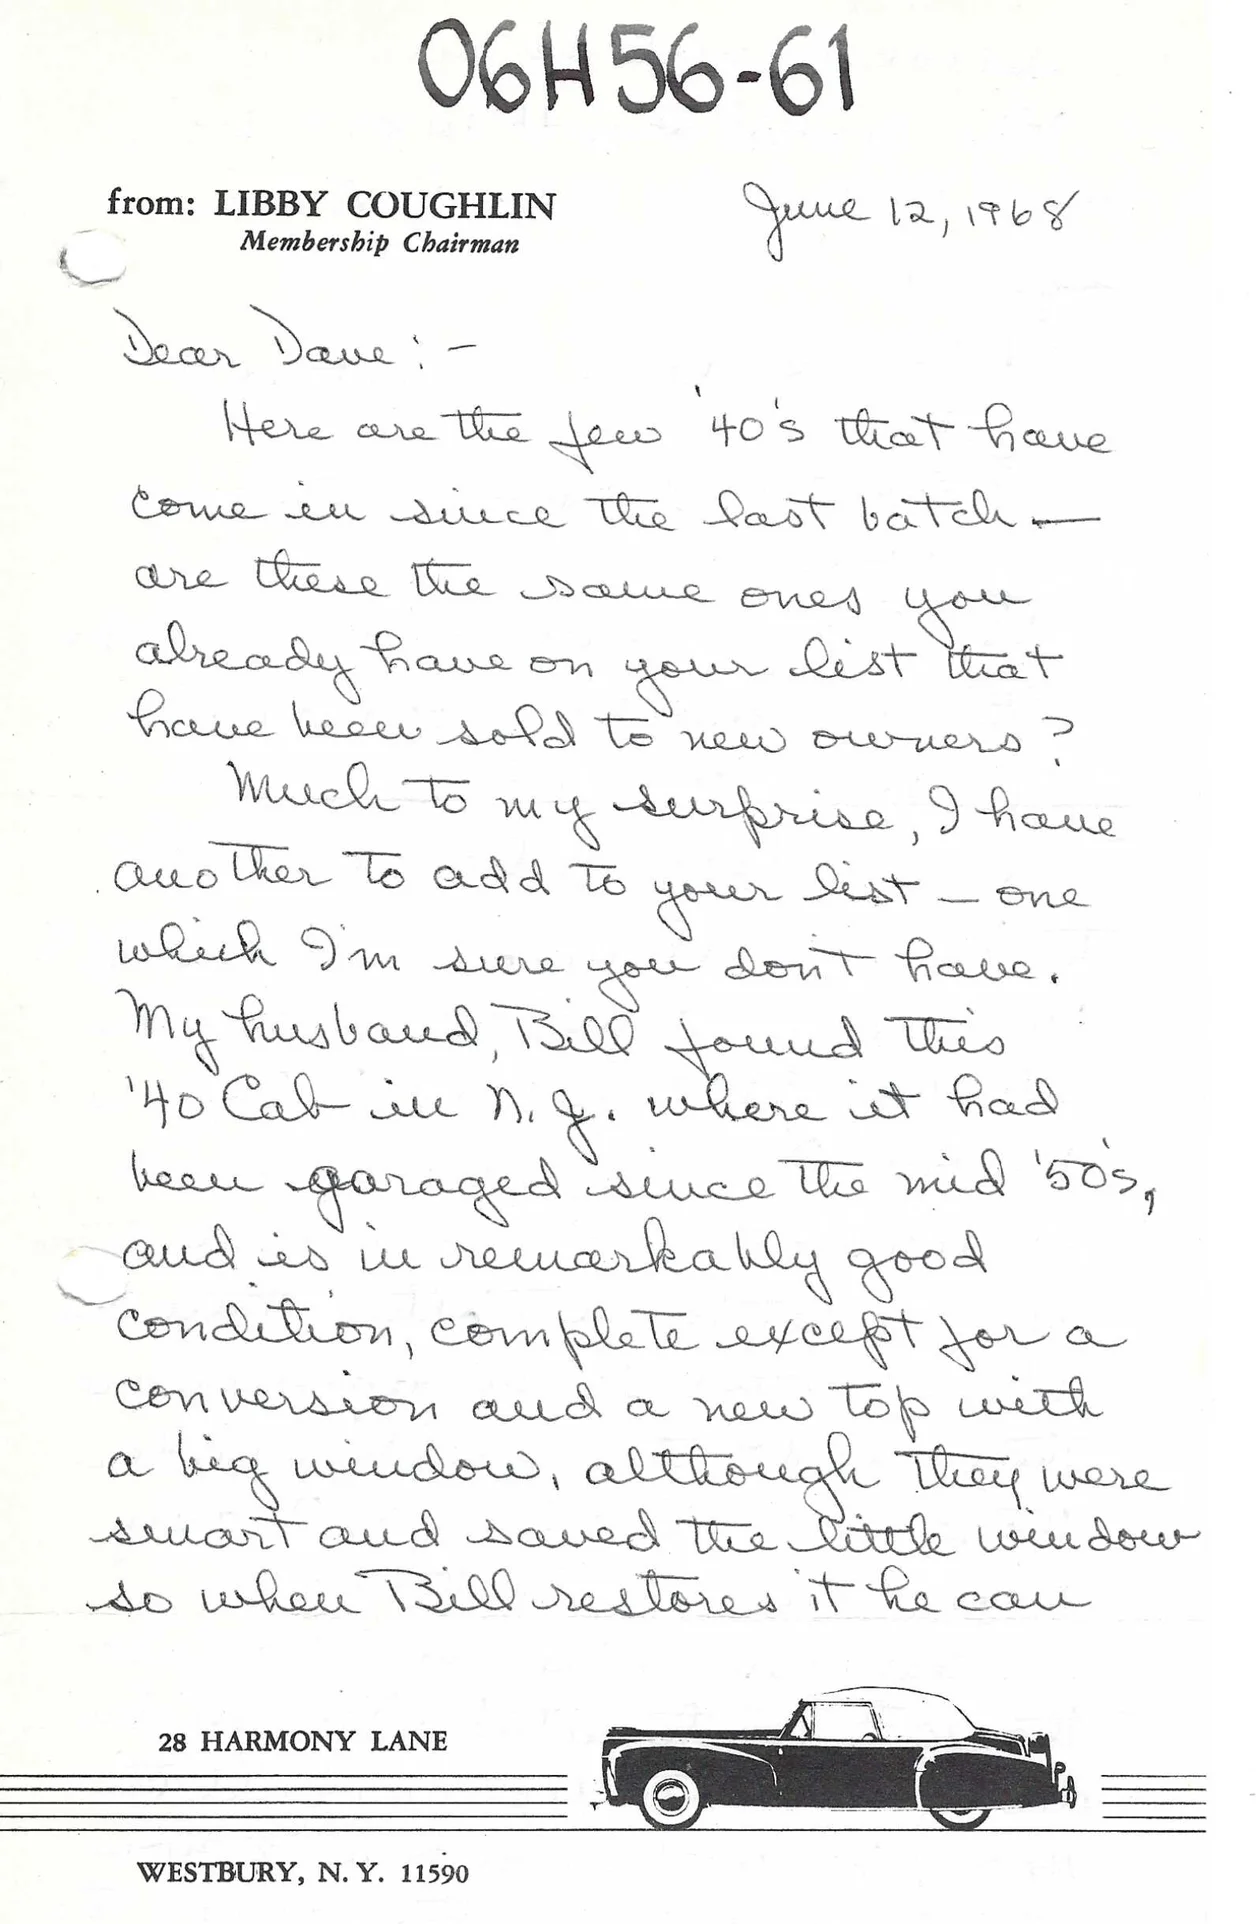 06H56-61
from: LIBBY COUGHLIN
Membership Chairman
June 12, 1968
Dear Dave: -
Here are the few '40's that have
come in since the last batch —
are these the same ones you
already have on your list that
have been sold to new owners?
Much to my surprise, I have
another to add to your list — one
which I'm sure you don't have.
My husband, Bill found this
'40 Cab in N.J. where it had
been garaged since the mid '50's,
and is in remarkably good
condition, complete except for a
conversion and a new top with
a big window, although they were
smart and saved the little window
so when Bill restores it he can
28 HARMONY LANE
WESTBURY, N. Y. 11590